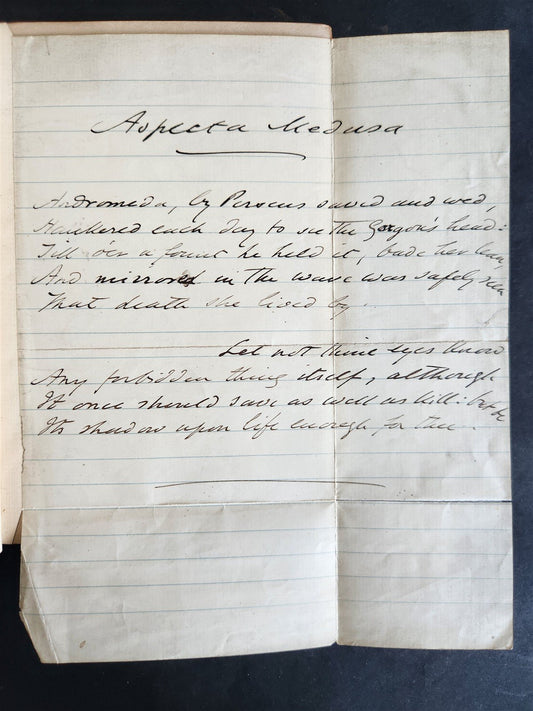 Aspecta Medusa
Andromeda, by Perseus saved and wed,
Hankered each day to see the Gorgon's head:
Till o'er a fount he held it, bade her lean,
And mirrored in the wave was safely seen
That death she lived by.
Let not thine eyes know
Any forbidden thing itself, although
It once should save as well as kill: but be
Its shadow upon life enough for thee.